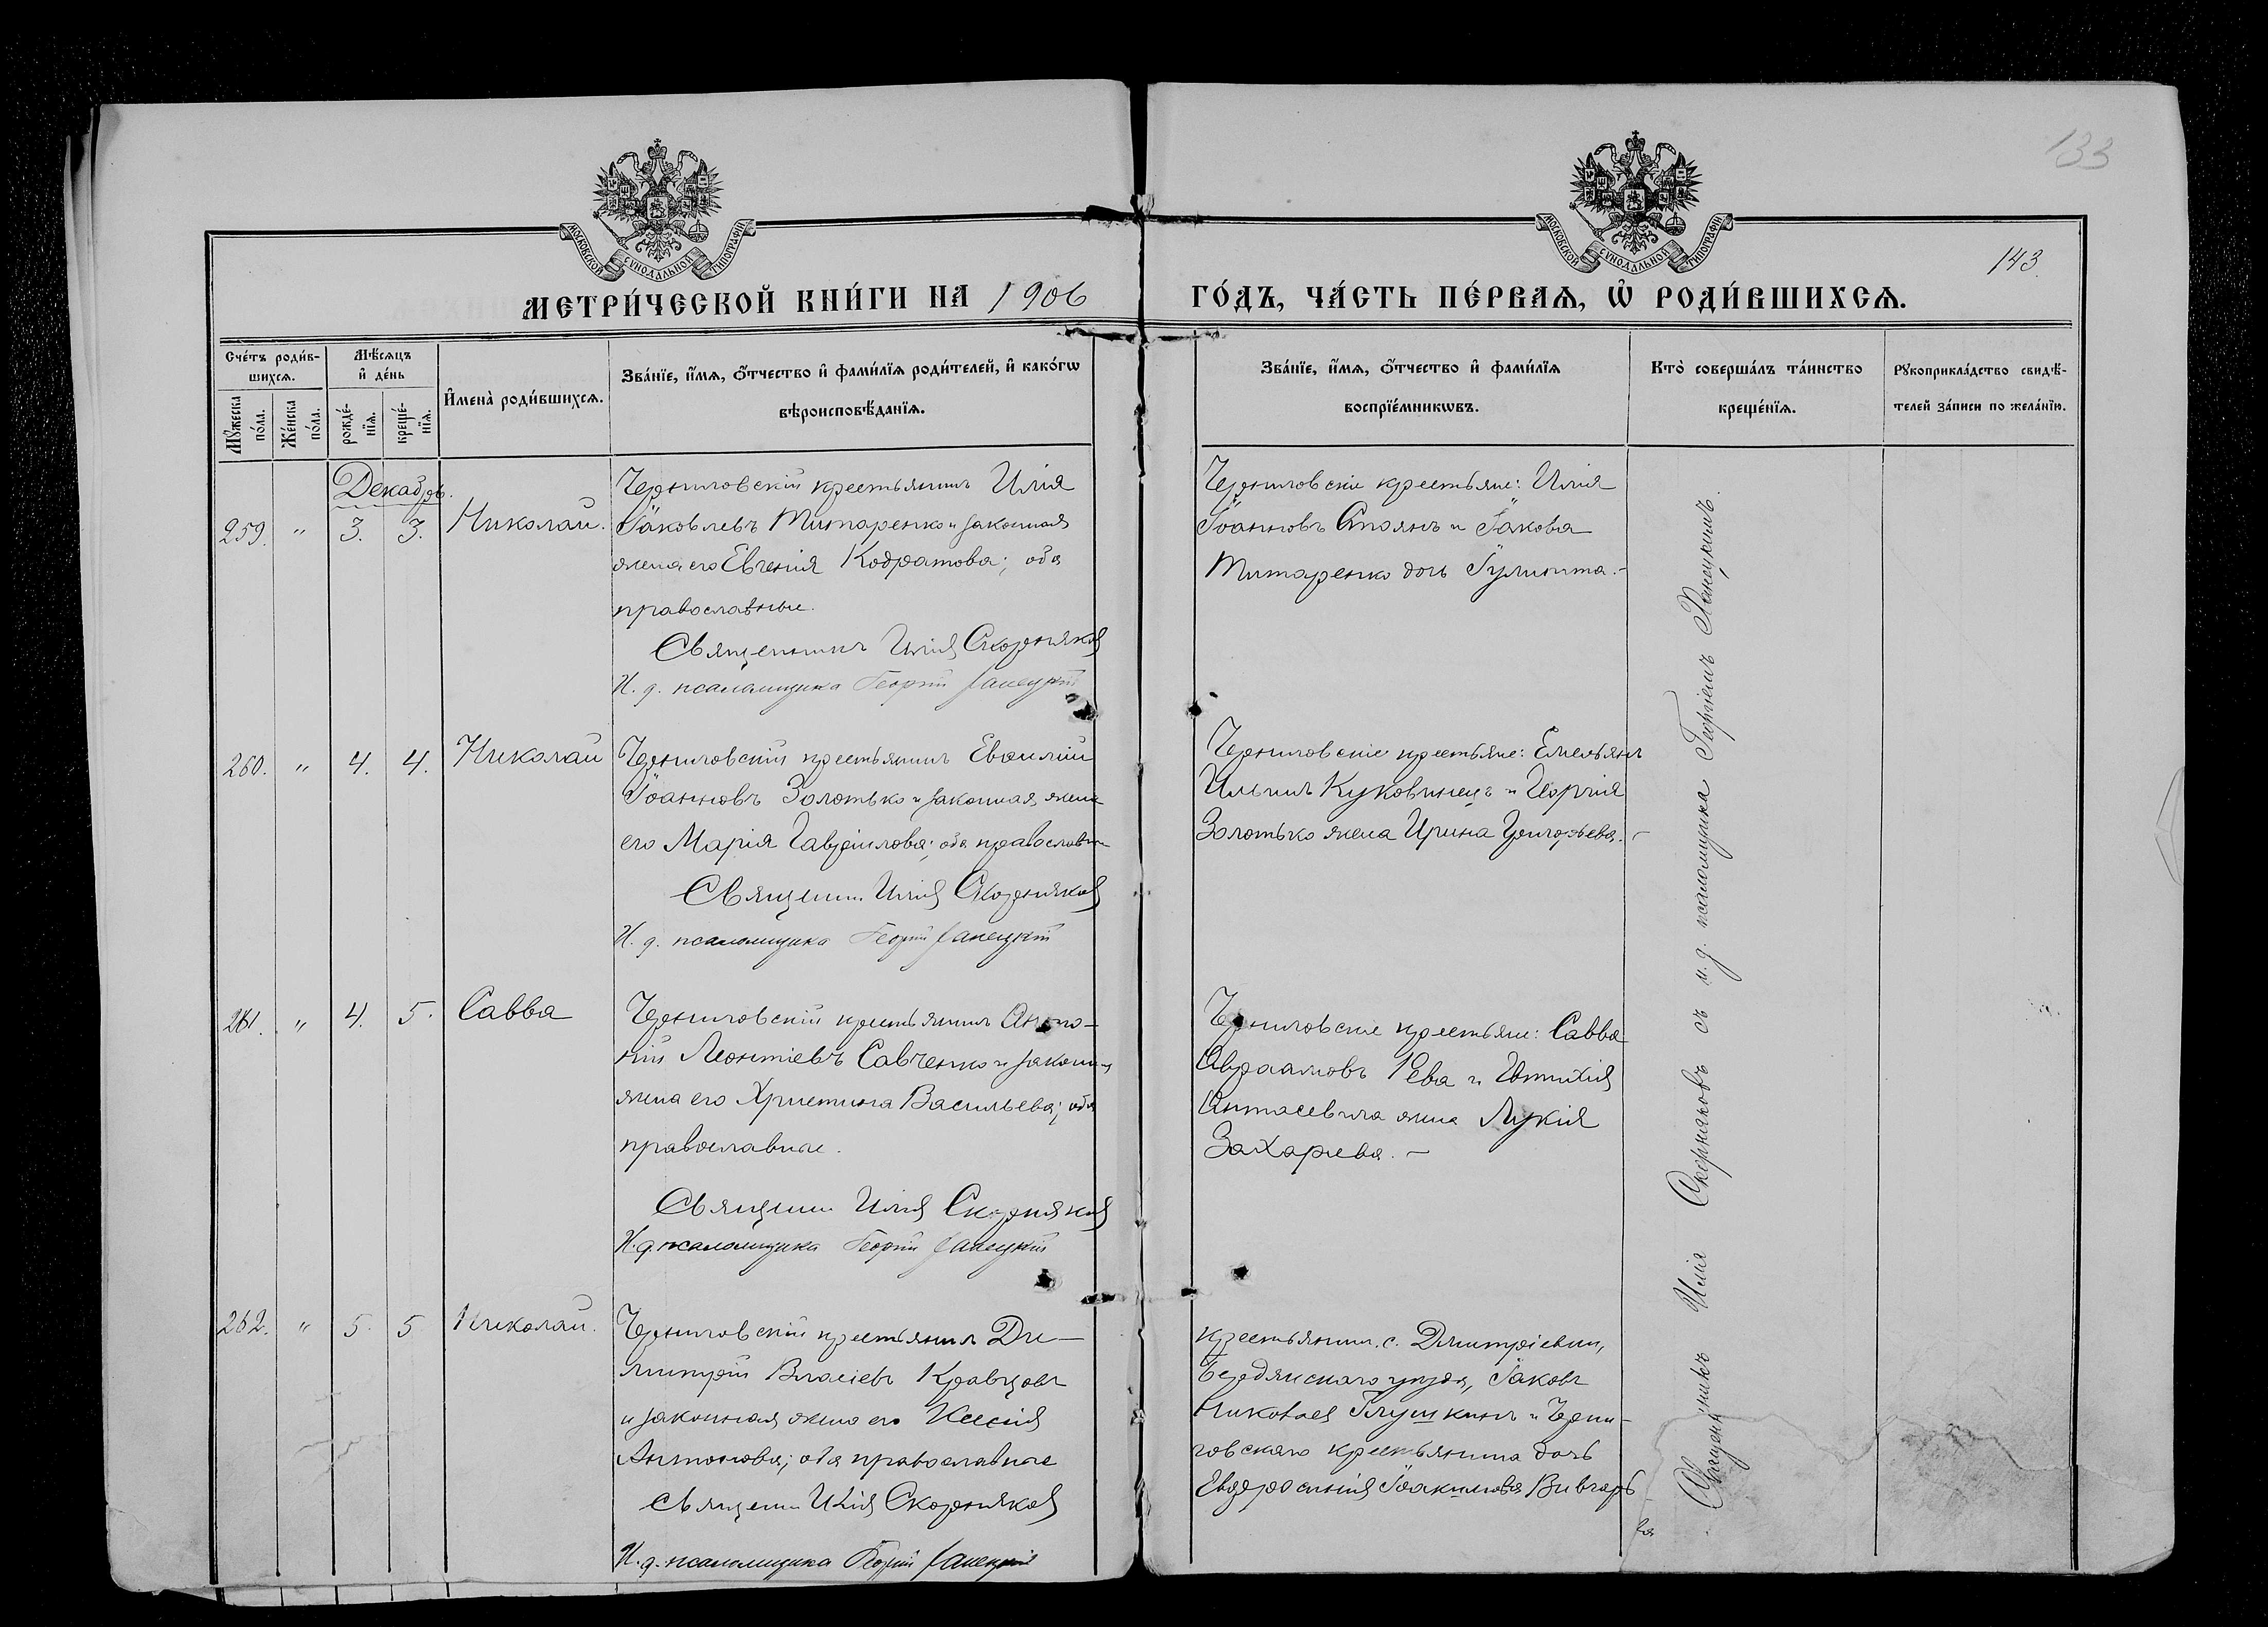 133
143.
МОСКОВСКОЙ СѴНОДАЛЬНОЙ ТИПОГРАФІИ
МОСКОВСКОЙ СѴНОДАЛЬНОЙ ТИПОГРАФІИ
МЕТРИ́ЧЕСКОЙ КНИ́ГИ НА 1906 ГО́ДЪ, ЧА́СТЬ ПЕ́РВАѦ, Ѡ҆ РОДИ́ВШИХСѦ.
Сче́тъ роди́в-
шихсѧ.
Мꙋ́жеска
по́ла.
Же́нска
по́ла.
Мѣ́сѧцъ
и҆ де́нь
рожде́-
нїѧ.
креще́-
нїѧ.
И҆мена̀ роди́вшихсѧ.
Зва́нїе, и҆́мѧ, ѻ҆́тчество и҆ фами́лїѧ роди́телей, и҆ како́гѡ
вѣроисповѣ́данїѧ.
Зва́нїе, и҆́мѧ, ѻ҆́тчество и҆ фами́лїѧ
воспрїе́мникѡвъ.
Кто̀ соверша́лъ та́инство
креще́нїѧ.
Рꙋкоприкла́дство свидѣ́-
телей за́писи по жела́нїю.
Декабрь.
259. " 3. 3. Николай.
Черниговскій крестьянинъ Илія
Іаковлевъ Титаренко и законная
жена его Евгенія Кодратова; оба
православные.
Священникъ Илія Скорняковъ
И. д. псаломщика Георгій Ханецкій
Черниговскіе крестьяне: Илія
Іоанновъ Стоянъ и Іакова
Титаренко дочь Іулитта.-
260. " 4. 4. Николай
Черниговскій крестьянинъ
Іоанновъ Золотько и законная жена
его Марія Гавріилова; оба православные
Священникъ Илія Скорняковъ
И. д. псаломщика Георгій Ханецкій
Черниговскіе крестьяне: Емельянъ
Ильинъ Куковинецъ и Георгія
Золотько жена Ирина Григорьева. -
261. " 4. 5. Савва
Черниговскій крестьянинъ Анто-
ній Леонтіевъ Савченко и законная
жена его Христина Васильева; оба
православные.
Священникъ Илія Скорняковъ
И. д. псаломщика Георгій Ханецкій
Черниговскіе крестьяне: Савва
Авраамовъ Рева и
жена Лукія
Захарьева. -
262. " 5. 5. Николай.
Черниговскій крестьянинъ Ди-
митрій Власіевъ Кравцовъ
и законная жена его Ксенія
Антонова; оба православные
Священникъ Илія Скорняковъ
И. д. псаломщика Георгій Ханецкій
крестьянинъ с. Дмитріевки,
Бердянскаго уѣзда, Іаковъ
Николаевъ Глушкинъ и Черни-
говскаго крестьянина дочь
Евфросинія Іоакимова
Священникъ Илія Скорняковъ съ и. д. псаломщика Георгіемъ Ханецкимъ.